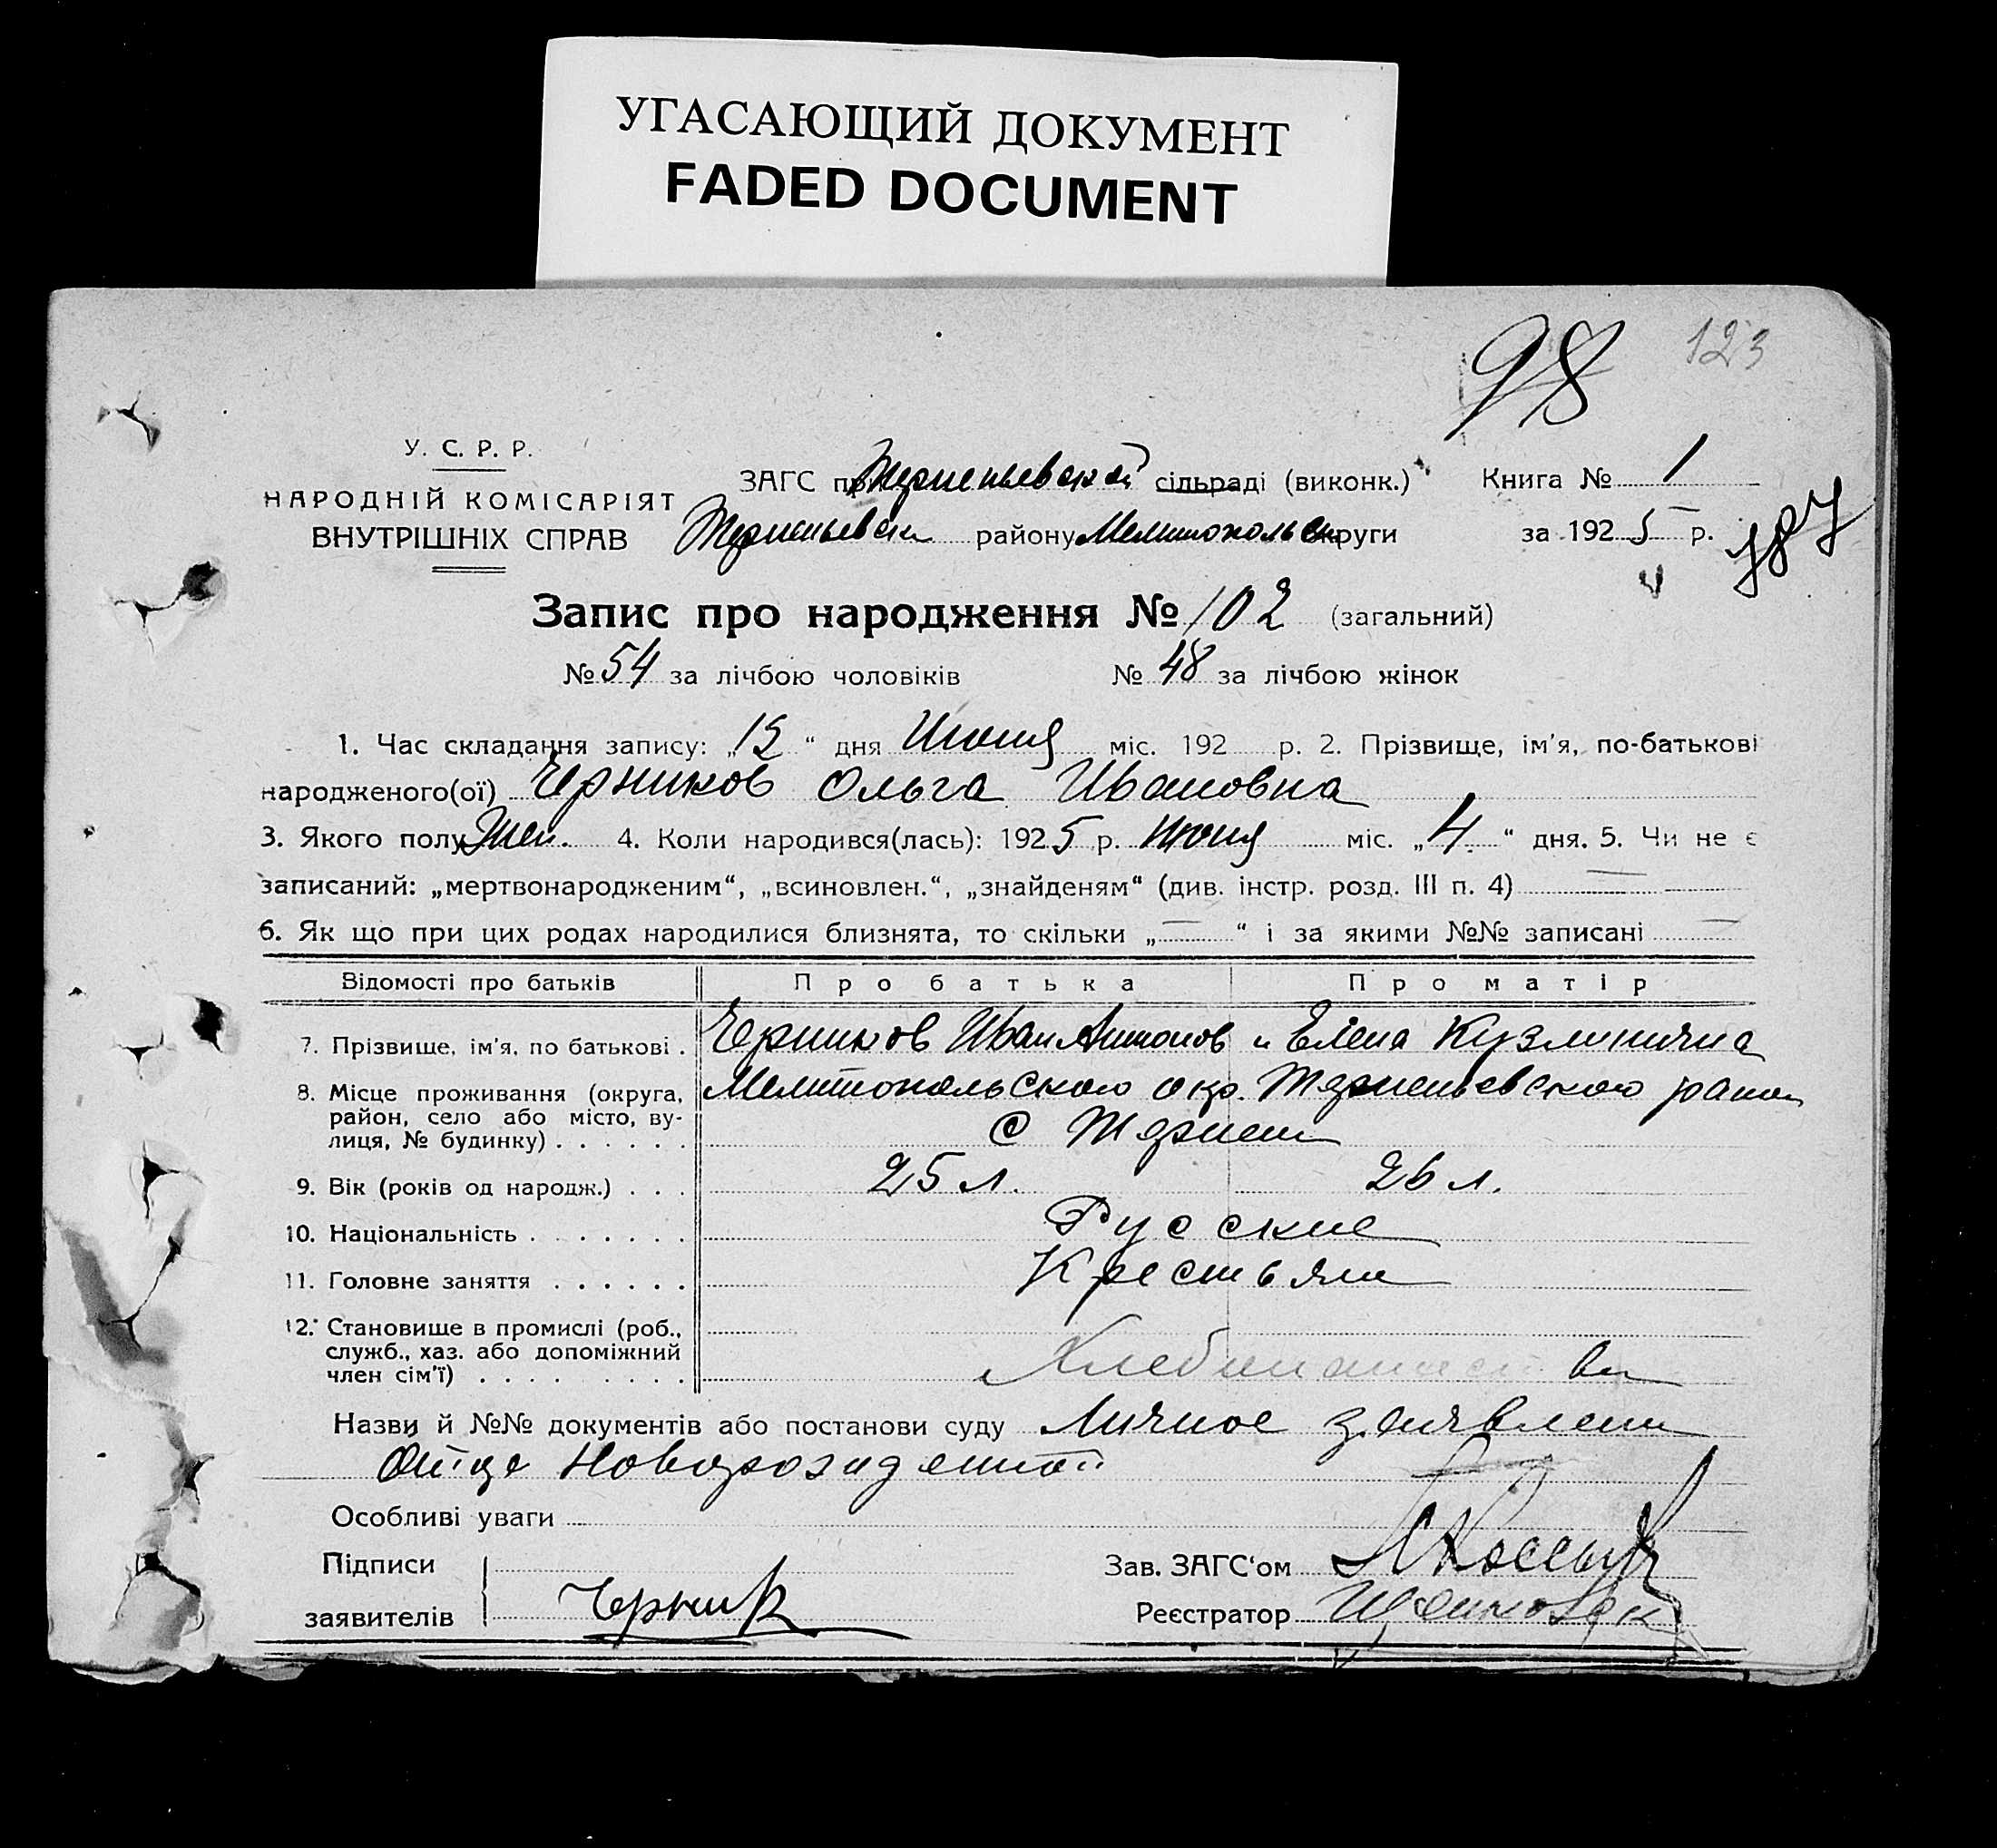 УГАСАЮЩИЙ ДОКУМЕНТ
FADED DOCUMENT
98 123
У. С. Р. Р.
НАРОДНІЙ КОМІСАРІЯТ
ВНУТРІШНІХ СПРАВ
ЗАГС при Терпеньевской сільраді (виконк.) Книга № 1
Терпеньевск района Мелитопольск округи за 1925 р.
787
Запис про народження № 102 (загальний)
№ 54 за лічбою чоловіків № 48 за лічбою жінок
1. Час складання запису: „ “ дня Июня міс. 192 р. 2. Прізвище, ім'я, по-батькові
народженого(ої) Черников Ольга Ивановна
3. Якого полу Жен. 4. Коли народився(лась): 1925 р. Июня міс. „4“ дня. 5. Чи не є
записаний: „мертвонародженим“, „всиновлен.“, „знайденям“ (див. інстр. розд. III п. 4) —
6. Як що при цих родах народилися близнята, то скільки „—“ і за якими №№ записані —
Відомості про батьків Про батька Про матір
7. Прізвище, ім'я, по батькові . Черников Иван Антонов и Елена Кузминична
8. Місце проживання (округа, Мелитопольского окр. Терпеньевского район
район, село або місто, ву-
лиця, № будинку) . . . . . . С Терпени
9. Вік (років од народж.) . . . 25 л. 26 л.
10. Національність . . . . . . . Русские
11. Головне заняття . . . . . . Крестьяне
12. Становище в промислі (роб.,
служб., хаз. або допоміжний
член сім'ї) . . . . . . . . .
Назви й №№ документів або постанови суду Личное заявлени
Отце Новорожденной
Особливі уваги
Підписи Зав. ЗАГС'ом
заявителів Черник Реєстратор